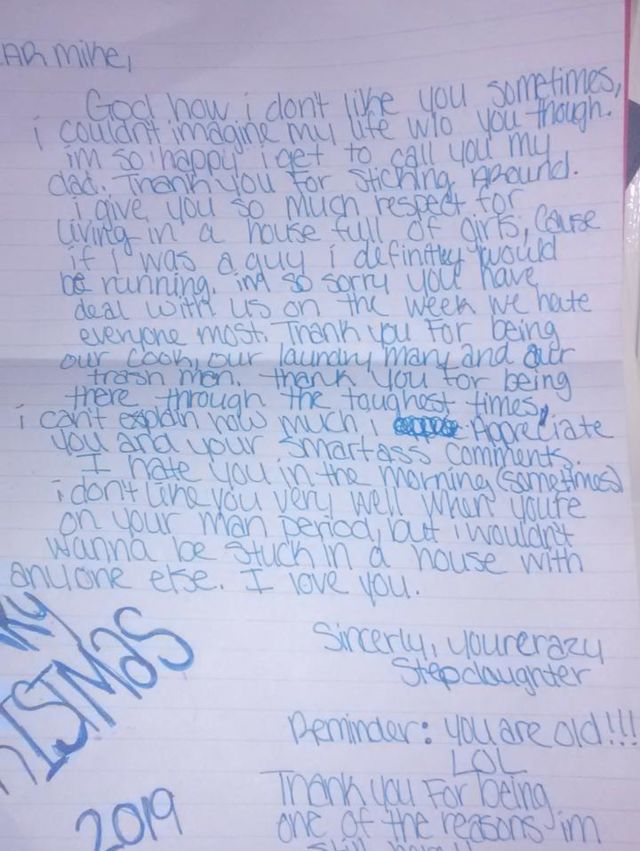 EAR Mike,
God how i don't like you sometimes,
i couldnt imagine my life w/o you though.
im so happy i get to call you my
dad. Thank you for sticking around.
i give you so much respect for
living in a house full of girls, cause
if i was a guy i definitley would
be running. im so sorry you have
deal with us on the week we hate
everyone most. Thank you for being
our cook, our laundry man, and our
trash man. thank you for being
there through the toughest times,
i can't explain how much i Appreciate
you and your smartass comments.
I hate you in the morning (sometimes)
i don't like you very well when you're
on your man period, but i wouldn't
wanna be stuck in a house with
anyone else. I love you.
Sincerly, your crazy
Stepdaughter
RISTMAS
2019
Reminder: you are old!!!
LOL
Thank you for being
one of the reasons im
still here!!